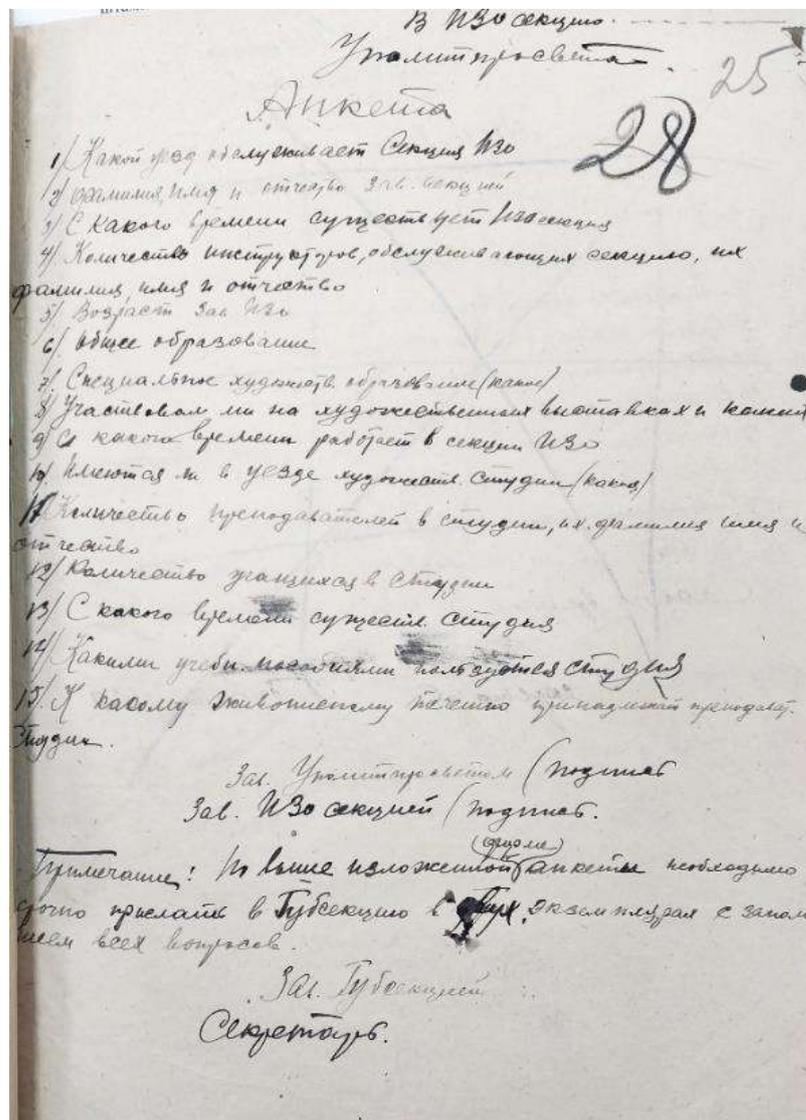 В ИЗО секцию.
Уполитпросвета.
25
28
Анкета
1/ Какой уезд обслуживает Секция Изо
2/ фамилия, имя и отчество Зав. секцией
3/ С какого времени существует Изо секция
4/ Количество инструкторов, обслуживающих секцию, их
фамилия, имя и отчество
5/ Возраст Зав Изо
6/ Общее образование
7/ Специальное художеств. образование (какое)
8/ Участвовал ли на художественных выставках и каких
9/ С какого времени работает в секции ИЗО
10/ Имеются ли в уезде художеств. студии (какия)
11/ Количество преподавателей в студии, их фамилия имя и
отчество
12/ Количество учащихся в студии
13/ С какого времени существ. студия
14/ Какими учебн. пособиями пользуется студия
15/. К какому живописному течению принадлежат преподават.
Студии.
Зав. Уполитпросветом (подпись
Зав. ИЗО секцией (подпись.
(форме)
Примечание: По выше изложенной анкеты необходимо
срочно прислать в Губсекцию в двух экземплярах с запол
нием всех вопросов.
Зав. Губсекцией
Секретарь.